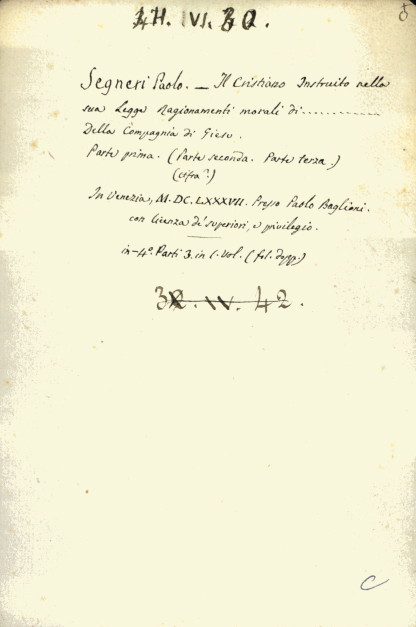 VI. 30.
Segneri Paolo. — Il Cristiano Instruito nella
sua Legge Ragionamenti morali di............
Della Compagnia di Giesu.
Parte prima. (Parte seconda. Parte terza.)
(cifra?)
In Venezia, M.DC.LXXXVII. Presso Paolo Baglioni.
con licenza de' superiori, e privilegio.
in-4°. Parti 3. in 1. vol. (fol. dopp.)
IV. 42.
C